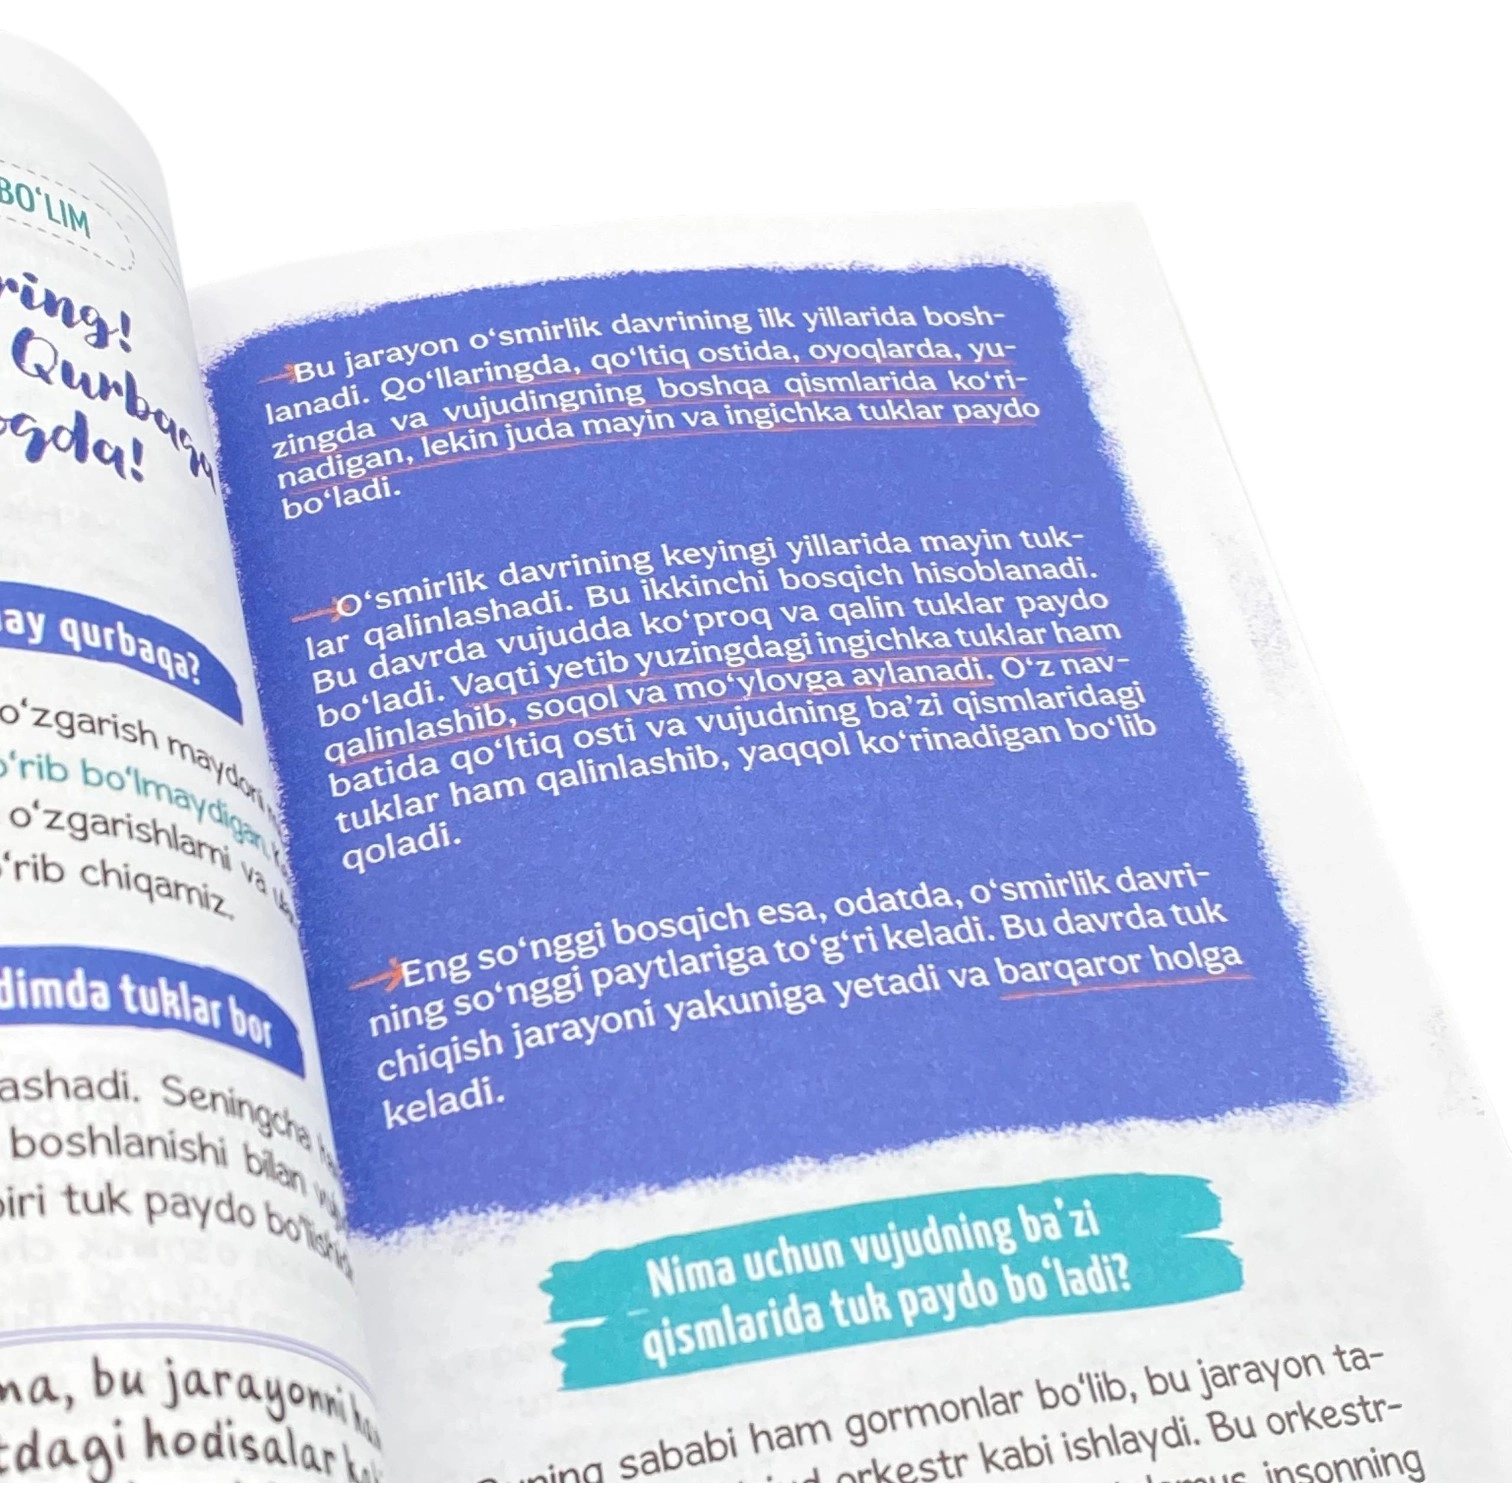 BO‘LIM
ring!
Qurbaqa
ogda!
ay qurbaqa?
o‘zgarish maydoni
o‘rib bo‘lmaydigan
o‘zgarishlarni va
o‘rib chiqamiz.
dimda tuklar bor
ashadi. Seningcha
boshlanishi bilan
biri tuk paydo
na, bu jarayonni
tdagi hodisalar
Bu jarayon o‘smirlik davrining ilk yillarida bosh-
lanadi. Qo‘llaringda, qo‘ltiq ostida, oyoqlarda, yu-
zingda va vujudingning boshqa qismlarida ko‘ri-
nadigan, lekin juda mayin va ingichka tuklar paydo
bo‘ladi.
O‘smirlik davrining keyingi yillarida mayin tuk-
lar qalinlashadi. Bu ikkinchi bosqich hisoblanadi.
Bu davrda vujudda ko‘proq va qalin tuklar paydo
bo‘ladi. Vaqti yetib yuzingdagi ingichka tuklar ham
qalinlashib, soqol va mo‘ylovga aylanadi. O‘z nav-
batida qo‘ltiq osti va vujudning ba’zi qismlaridagi
tuklar ham qalinlashib, yaqqol ko‘rinadigan bo‘lib
qoladi.
Eng so‘nggi bosqich esa, odatda, o‘smirlik davri-
ning so‘nggi paytlariga to‘g‘ri keladi. Bu davrda tuk
chiqish jarayoni yakuniga yetadi va barqaror holga
keladi.
Nima uchun vujudning ba’zi
qismlarida tuk paydo bo‘ladi?
sababi ham gormonlar bo‘lib, bu jarayon ta-
orkestr kabi ishlaydi. Bu orkestr-
insonning